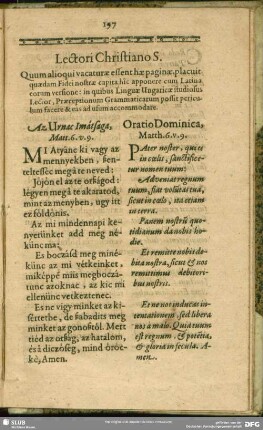 197
Lectori Christiano S.
Quum alioqui vacaturæ essent hæ paginæ, placuit
quædam Fidei nostræ capita hîc apponere cum Latina
eorum versione: in quibus Linguæ Ungaricæ studiosus
Lector, Præceptionum Grammaticarum possit pericu-
lum facere & eas ad usum accommodare.
Az Urnac Imátsága,
Matt. 6. v. 9.
MI Atyánc ki vagy az
mennyekben, szen-
teltesséc meg á te neved:
Jöjön el az te orſágod:
légyen meg á te akaratod,
mint az menyben, ugy itt
ez földönis.
Az mi mindennapi ke-
nyerünket add meg né-
künc ma:
Es boczásd meg miné-
künc az mi vétkeinket
miképpé miis megboczá-
tunc azoknac, az kic mi
ellenünc vetkeztenec.
Es ne vigy minket az ki-
sértetbe, de szabadits meg
minket az gonosztól. Mert
tiéd az orſág, az hatalom,
és á diczőség, mind örök-
ké, Amen.
Oratio Dominica,
Matth. 6. v. 9.
PAter noster, qui es
in cœlis, sanctifice-
tur nomen tuum:
Adveniat regnum
tuum, fiat voluntas tua,
sicut in cœlo, ita etiam
in terra.
Panem nostrū quo-
tidianum da nobis ho-
die.
Et remitte nobis de-
bita nostra, sicut & nos
remittimus debitori-
bus nostris.
Et ne nos inducas in
tentationem, sed libera
nos a malo. Quia tuum
est regnum, & potētia,
& gloria in secula. A-
men.
SLUB
DFG